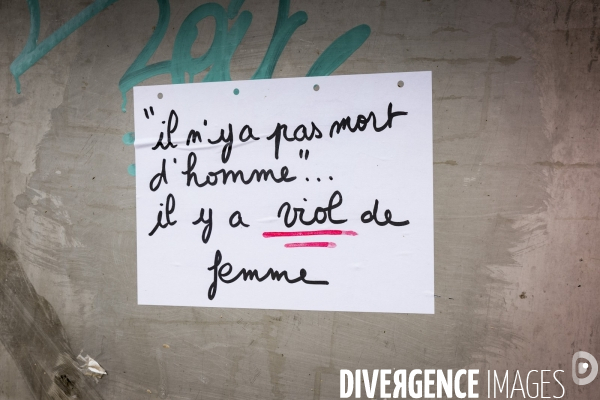 "il n'y a pas mort
d'homme"...
il y a viol de
femme
DIVERGENCE IMAGES